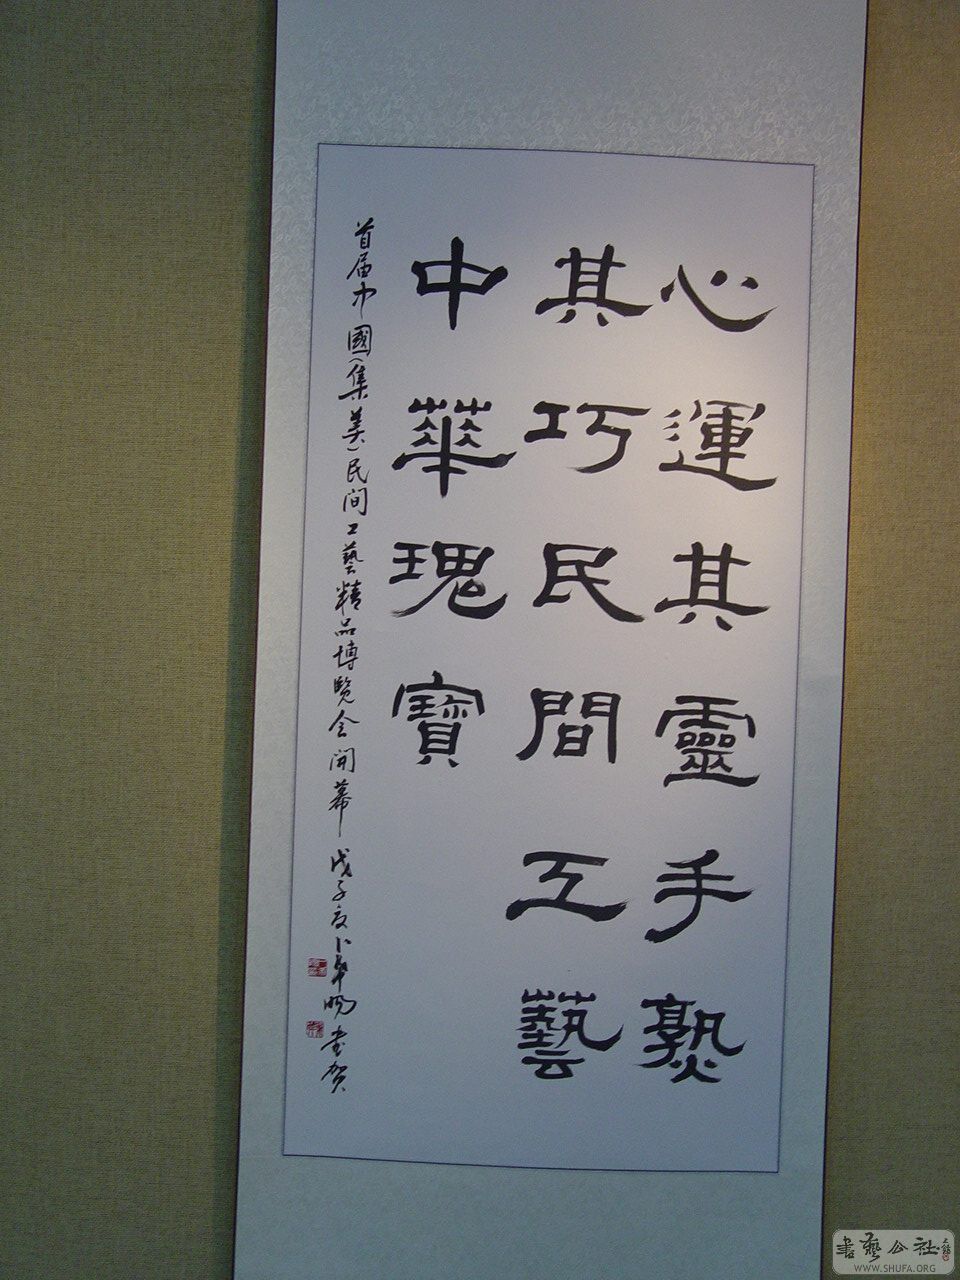 心運其靈手熟
其巧民間工藝
中華瑰寶
首届中國(集美)民间工藝精品博覽会開幕
戊子夏卜
書賀
書藝公社
WWW.SHUFA.ORG